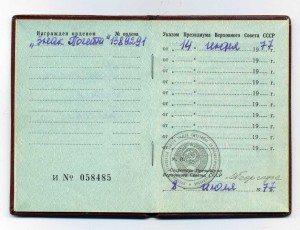 Награждён орденом № ордена
„Знак Почёта" 1389391
И № 058485
Указом Президиума Верховного Совета СССР
от „ 14 „ июня 1977 г.
от „ „ 19 г.
от „ „ 19 г.
от „ „ 19 г.
от „ „ 19 г.
от „ „ 19 г.
от „ „ 19 г.
от „ „ 19 г.
М. П.
Секретарь Президиума
Верховного Совета СССР
„ 8 „ июля 1977 г.